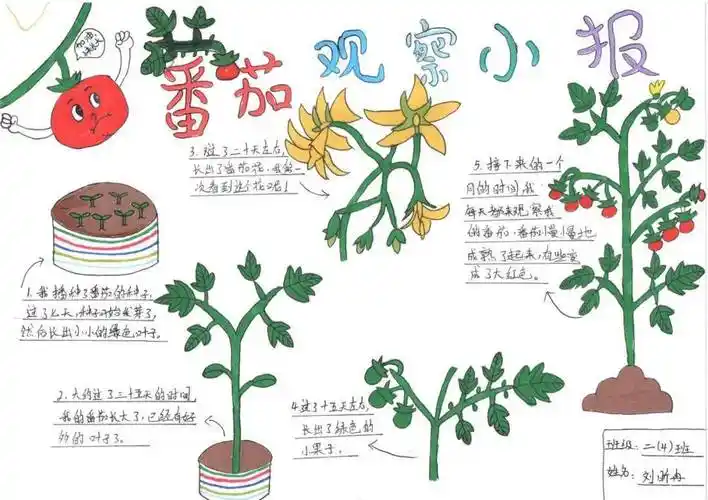 番茄观察小报
加油
1. 我播种了番茄的种子,
过了七天,种子开始发芽了,
然后长出小小的绿色叶子。
2. 大约过了三十五天的时间,
我的番茄长大了,已经有好
多的叶子了。
3. 过了二十天左右,
长出了番茄花,我第一
次看到这个花呢!
4. 过了十五天左右,
长出了绿色的
小果子。
5. 接下来的一个
月的时间,我
每天都来观察我
的番茄,番茄慢慢地
成熟了起来,有些变
成了大红色。
班级:二(4)班
姓名:刘